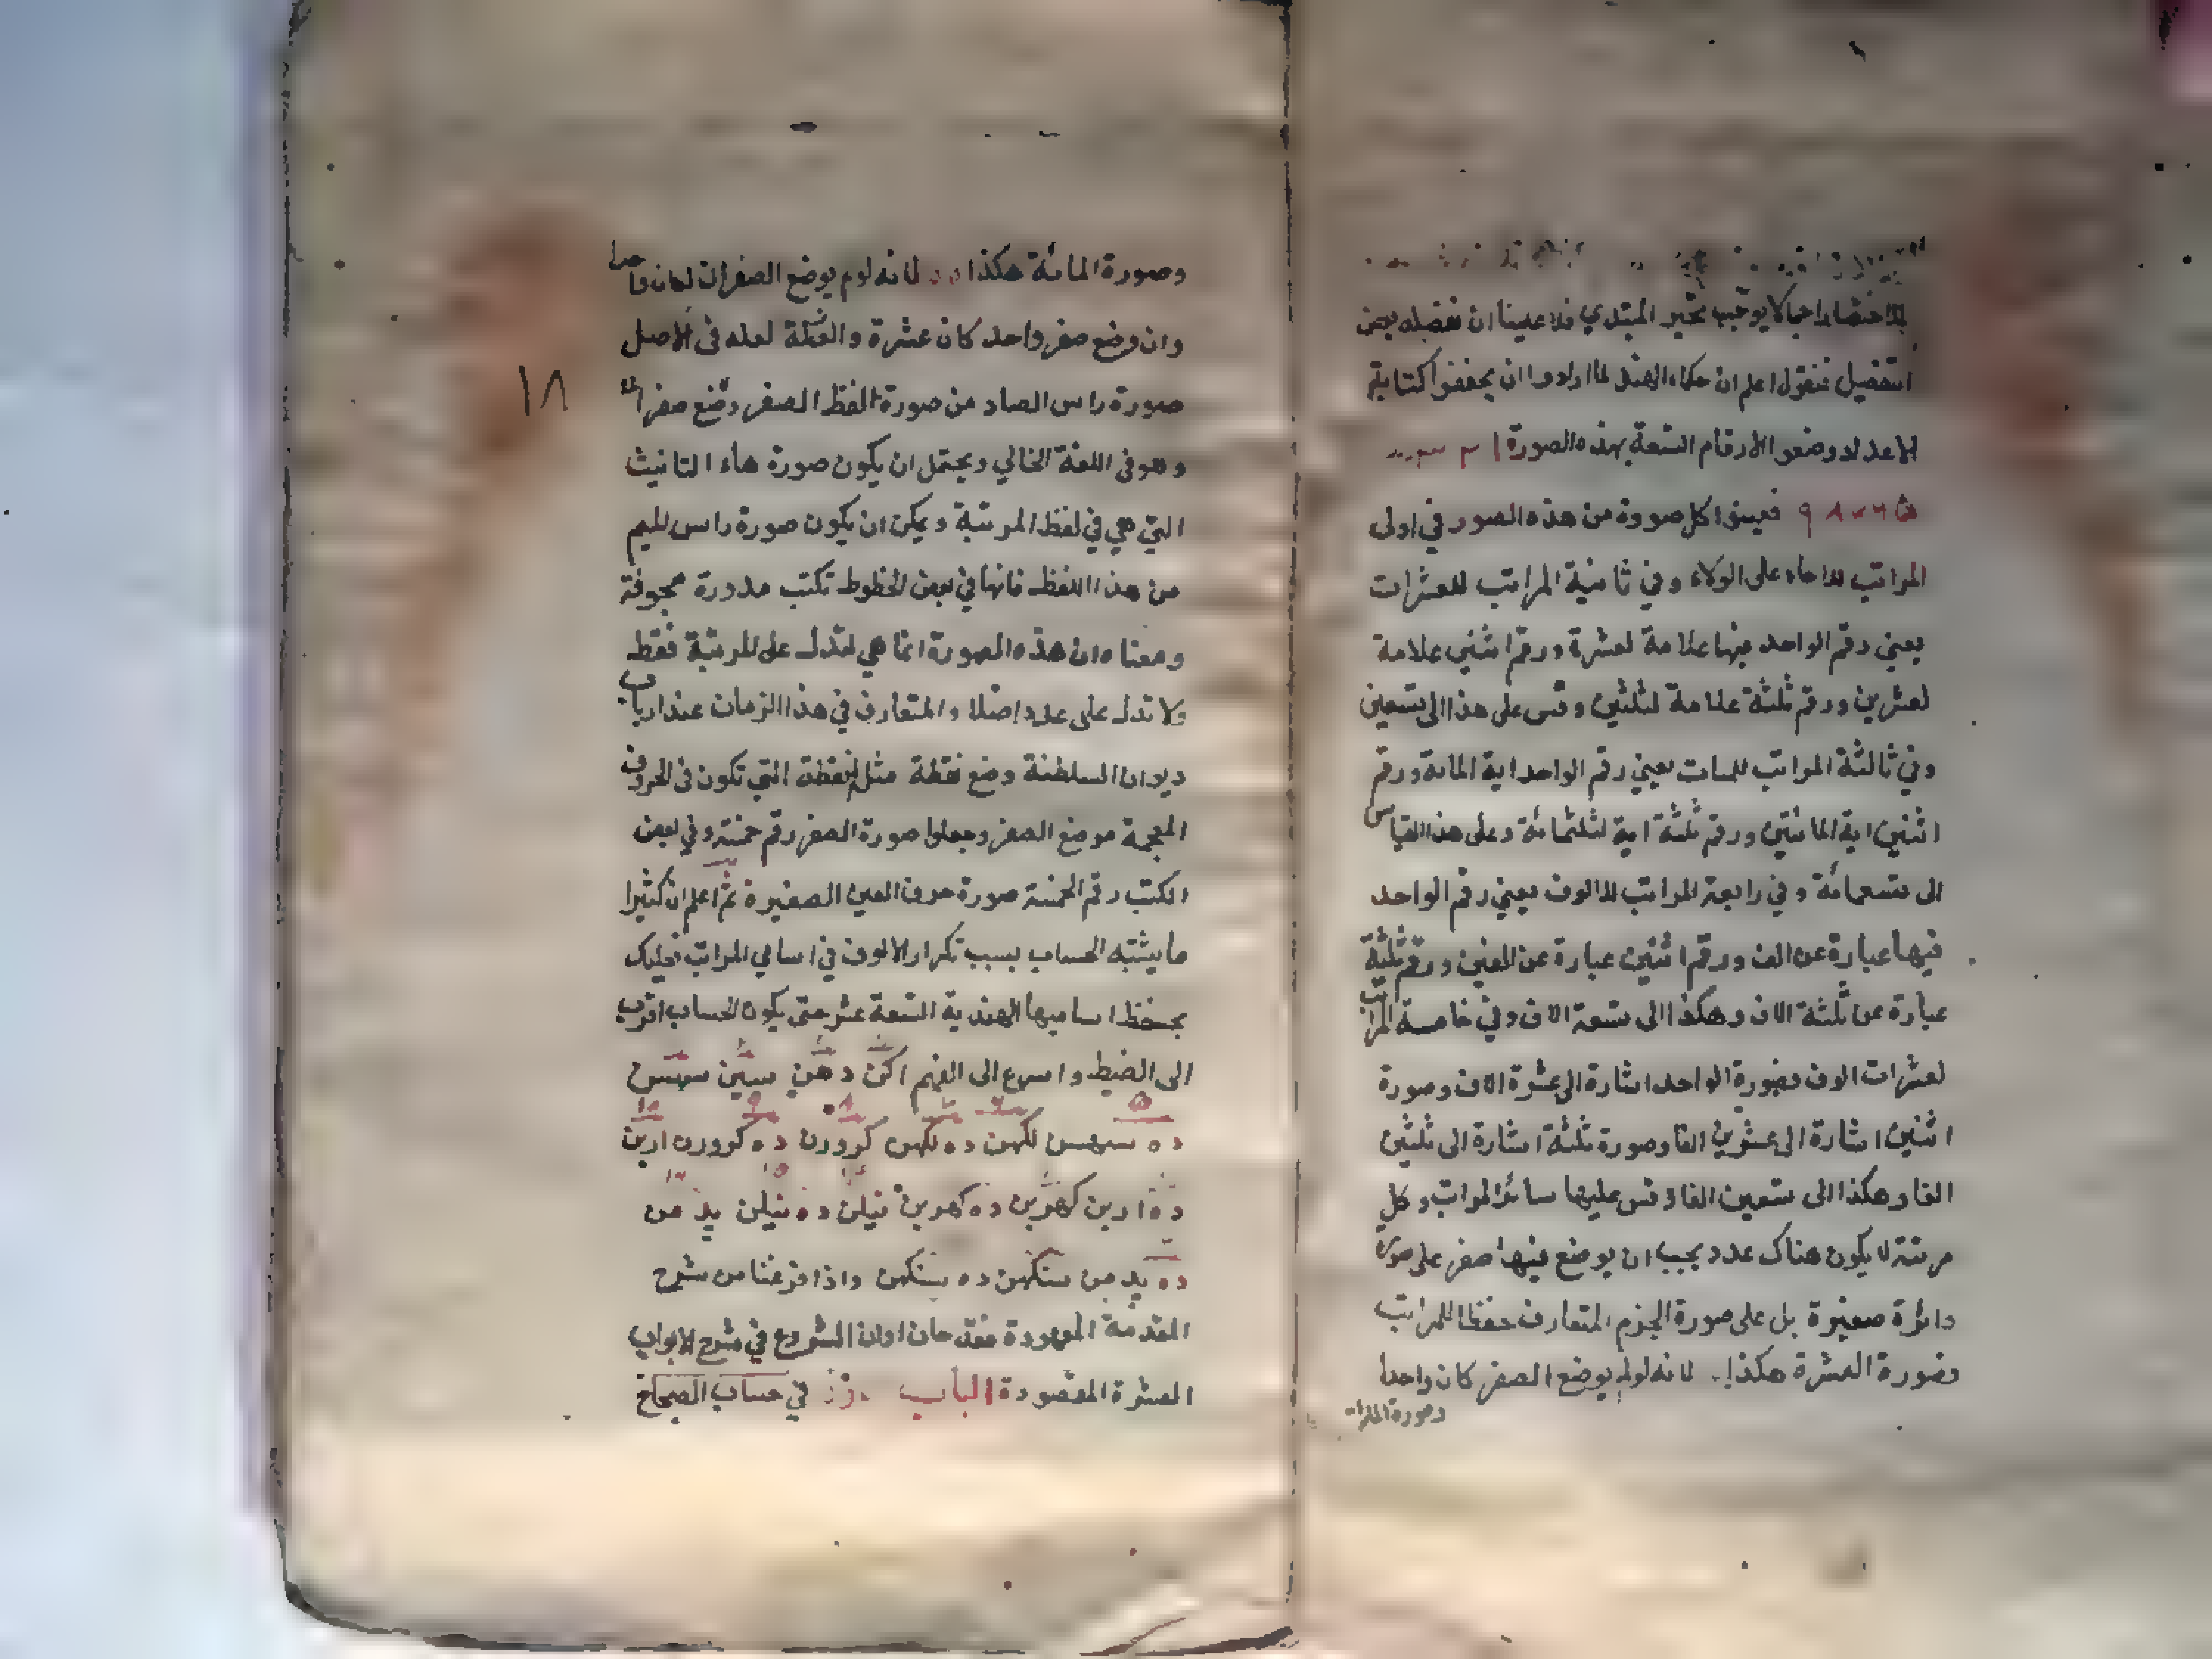 للاختصار اجمالا يوجب تحير المبتدي فلا علينا ان نفصله بعض
التفصيل فنقول اعلم ان حكماء الهند لما ارادوا ان يخففوا كتابة
الاعداد وضعوا الارقام التسعة بهذه الصورة ١ ٢ ٣
٩ ٨ ٧ ٦ ۵ فعينوا كل صورة من هذه الصور في اولى
المراتب للاحاد على الولاء وفي ثانية المراتب للعشرات
يعني رقم الواحد فيها علامة لعشرة ورقم اثنين علامة
لعشرين ورقم ثلثة علامة لثلثين وقس على هذا الى تسعين
وفي ثالثة المراتب للمات يعني رقم الواحد اية المائة ورقم
اثنين اية المائتين ورقم ثلثة اية لثلثمائة وعلى هذا القياس
الى تسعمائة وفي رابعة المراتب للالوف يعني رقم الواحد
فيها عبارة عن الف ورقم اثنين عبارة عن الفين ورقم ثلثة
عبارة عن ثلثة الاف وهكذا الى تسعة الاف وفي خامسة المراتب
لعشرات الوف فصورة الواحد اشارة الى عشرة الاف وصورة
اثنين اشارة الى عشرين الفا وصورة ثلثة اشارة الى ثلثين
الفا وهكذا الى تسعين الفا وقس عليها سائر المراتب وكل
مرتبة لا يكون هناك عدد يجب ان يوضع فيها صفر على صورة
دائرة صغيرة بل على صورة الجزم المتعارف حفظا للمراتب
فصورة العشرة هكذا ١٠ لانه لو لم يوضع الصفر كان واحدا
وصورة المائة
وصورة المائة هكذا ١٠٠ لانه لو لم يوضع الصفران لكان واحدا
وان وضع صفر واحد كان عشرة والصفر لعله في الاصل
صورة راس الصاد من صورة لفظ الصفر وضع صفرا
وهو في اللغة الخالي ويحتمل ان يكون صورة هاء التانيث
التي هي في لفظ المرتبة ويمكن ان يكون صورة راس الميم
من هذا اللفظ فانها في بعض الخطوط تكتب مدورة مجوفة
ومعناه ان هذه الصورة انما هي لتدل على المرتبة فقط
ولا تدل على عدد اصلا والمتعارف في هذا الزمان عند ارباب
ديوان السلطنة وضع نقطة مثل النقطة التي تكون في الحروف
المعجمة موضع الصفر وجعلوا صورة الصفر رقم خمسة وفي بعض
الكتب رقم الخمسة صورة حرف العين الصغيرة ثم اعلم ان كثيرا
ما يشتبه الحساب بسبب تكرار الالوف في اسامي المراتب فعليك
بحفظ اساميها الهندية التسعة عشر حتى يكون الحساب اقرب
الى الضبط واسرع الى الفهم اكن دهن سين سهس
ده سهس لكهن ده لكهن كرورن ده كرورن اربن
ده اربن كهربن ده كهربن نيلن ده نيلن پدمن
ده پدمن سنكهن ده سنكهن واذا فرغنا من شرح
المقدمة الموعودة فقد حان اوان الشروع في شرح الابواب
العشرة المقصودة الباب في حساب الصحاح
١٨